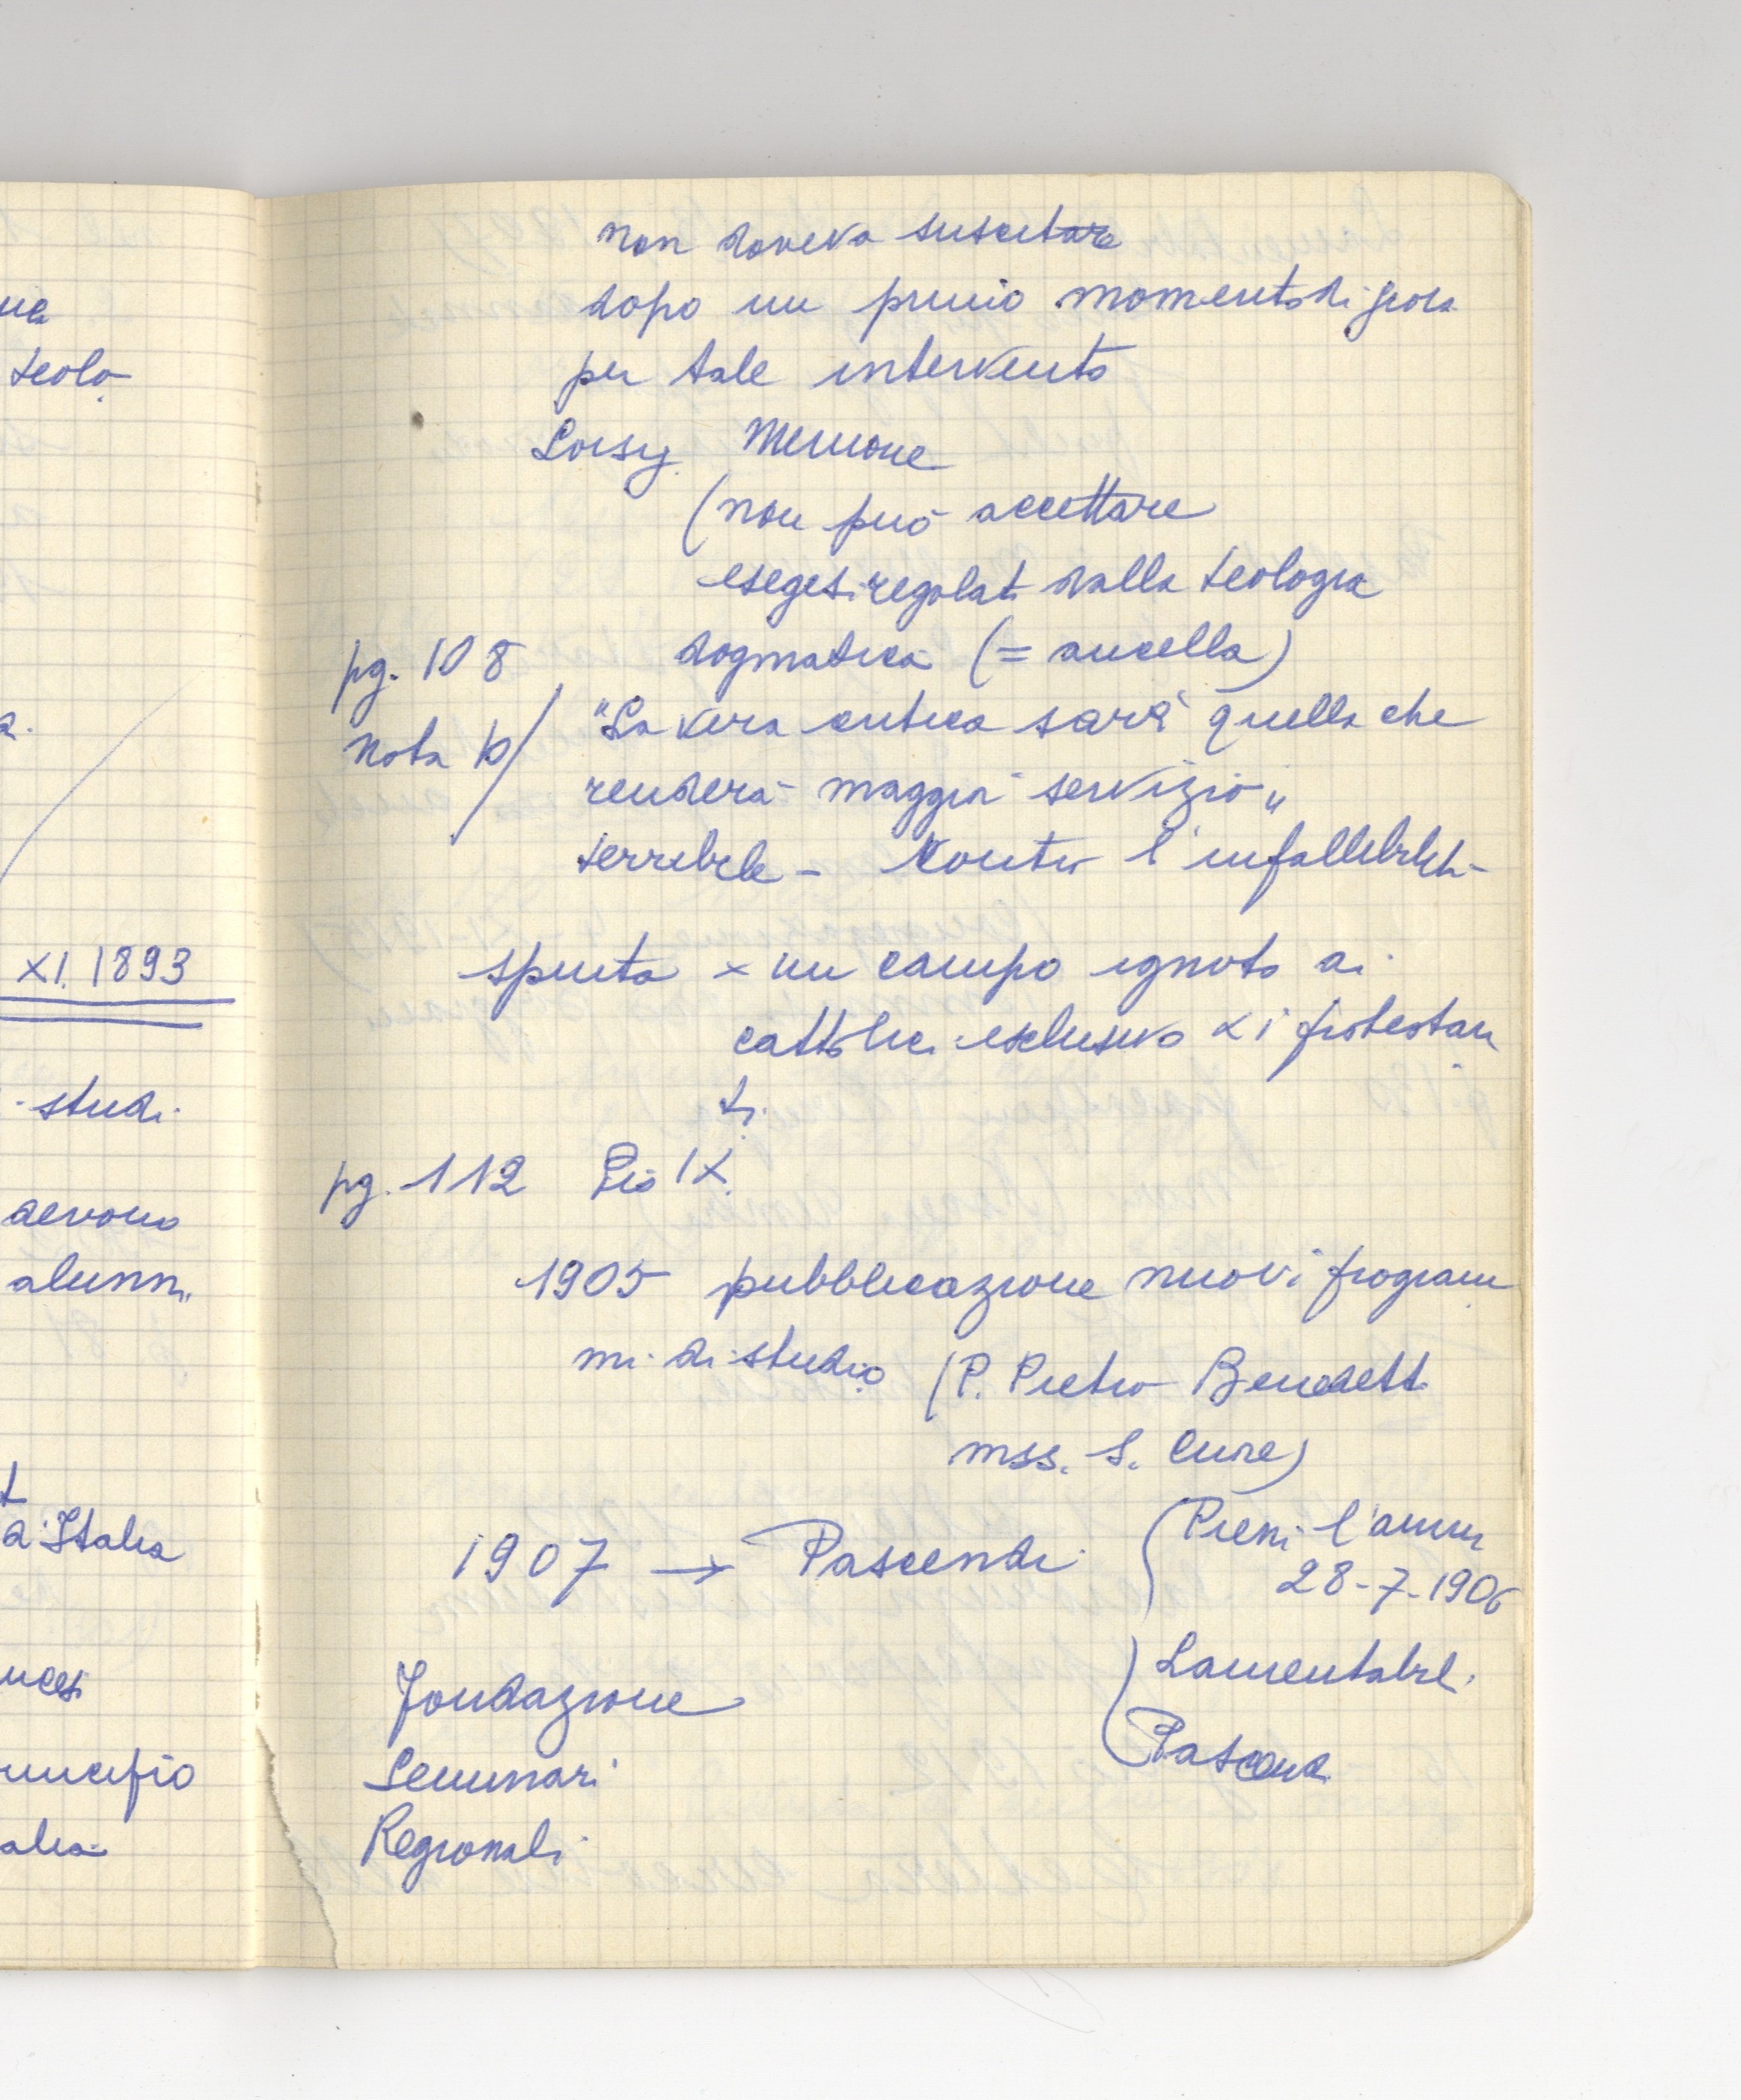 ue
teolo
a.
XI. 1893
studi
devono
alunni
a Italia
ucesi
uncipio
alia
non doveva suscitare
dopo un primo momento di gioia
per tale intervento
Loisy Memorie
(non può accettare
esegesi regolat dalla teologia
pg. 108 dogmatica (= ancella)
Nota "La vera critica sarà quella che
renderà maggior servizio"
terribile - contro l'infallibilità
spinta x un campo ignoto ai
cattolici esclusivo x i protestan
ti.
pg. 112 Pio IX.
1905 pubblicazione nuovi program
mi di studio (P. Pietro Benedetti
mss. S. Cuore)
1907 → Pascendi Pieni l'animo
28-7-1906
Lamentabili
Fondazione
Pascendi
Seminari
Regionali